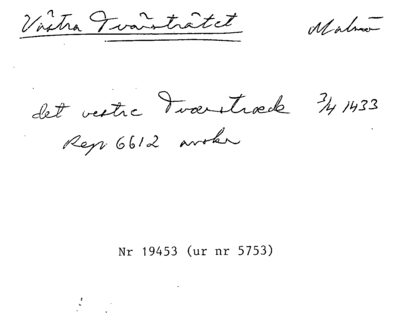 Västra Tvärstråtet Malmö
det vestre Tværstræde 3/4 1433
Rep 6612
Nr 19453 (ur nr 5753)